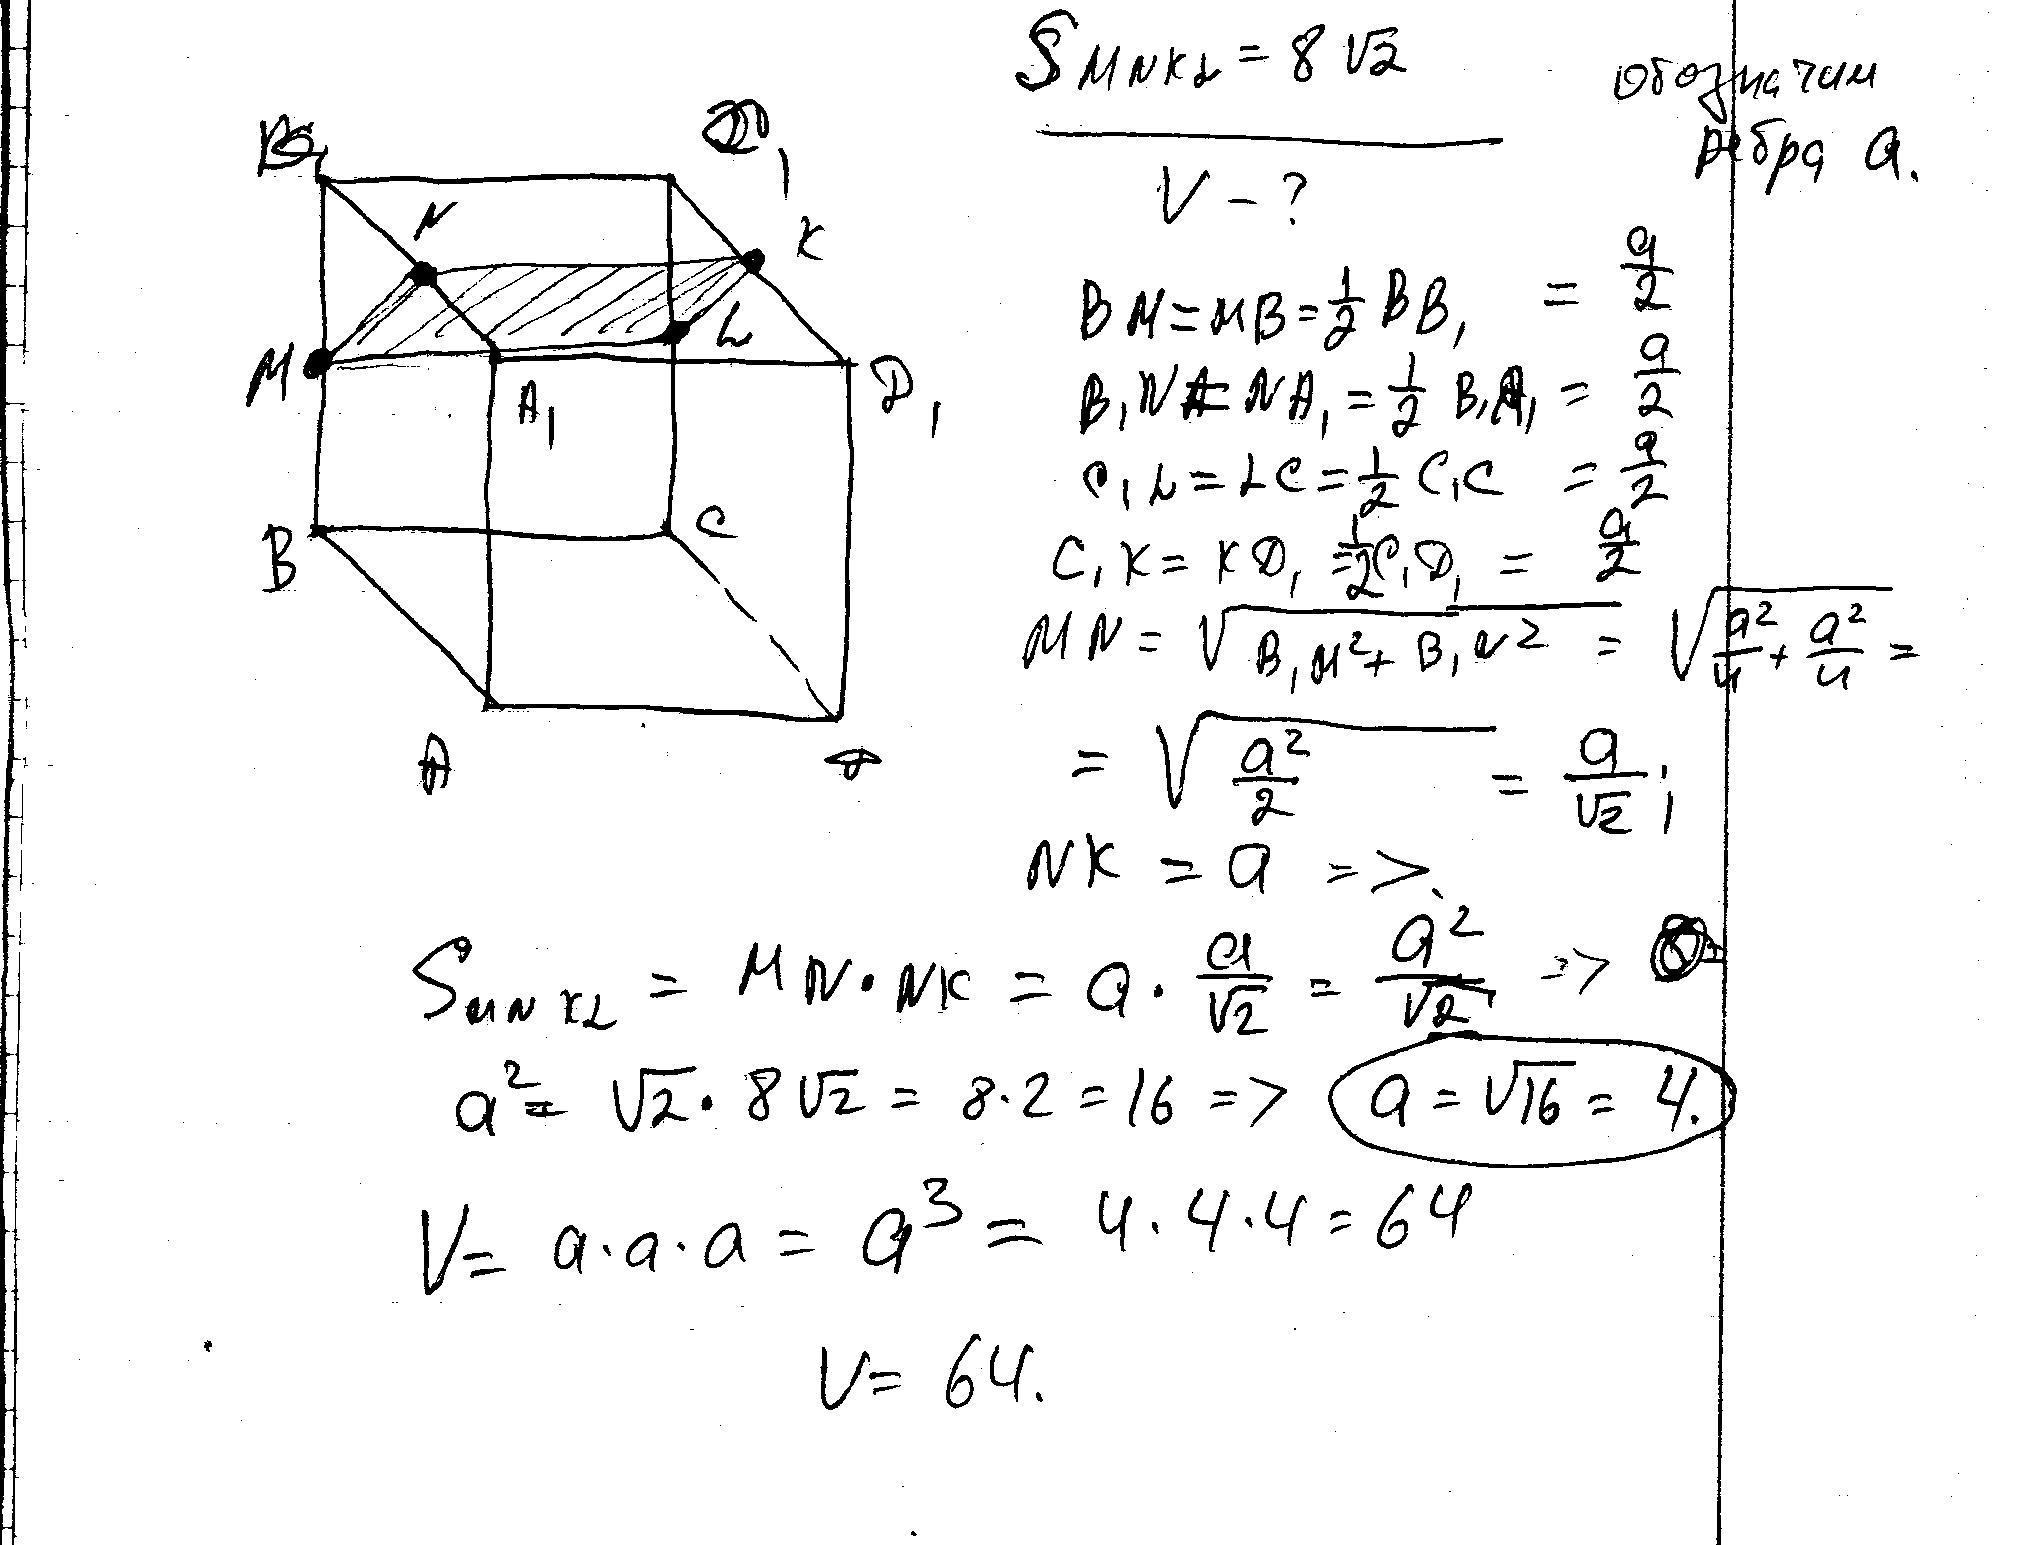 S MNKL = 8√2
обозначим
ребра a.
V - ?
B₁
N
K
M
L
A₁
D₁
B
C
A
BM = MB = 1/2 BB₁ = a/2
B₁N = NA₁ = 1/2 B₁A₁ = a/2
C₁L = LC = 1/2 C₁C = a/2
C₁K = KD₁ = 1/2 C₁D₁ = a/2
MN = √(B₁M² + B₁N²) = √(a²/4 + a²/4) =
= √(a²/2) = a/√2 ;
NK = a =>
S MNKL = MN · NK = a · a/√2 = a²/√2 =>
a² = √2 · 8√2 = 8·2 = 16 => a = √16 = 4.
V = a·a·a = a³ = 4·4·4 = 64
V = 64.